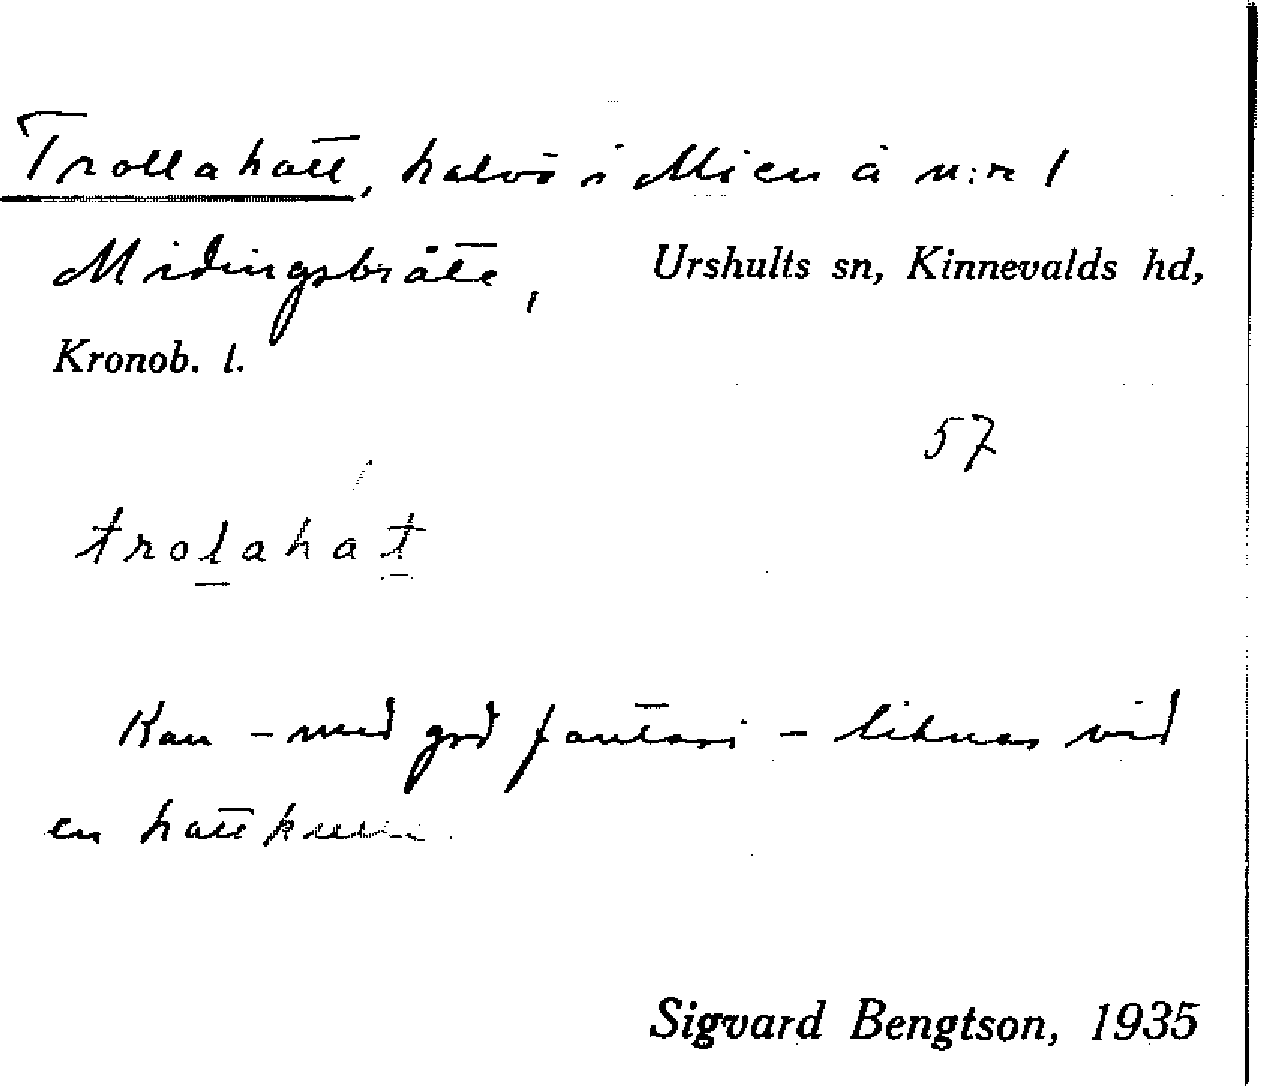 Trollahatt, halvö i Mien å n:r 1
Midingsbråte, Urshults sn, Kinnevalds hd,
Kronob. l.
57
trolahat
Kan – med god fantasi – liknas vid
en hattkulle.
Sigvard Bengtson, 1935